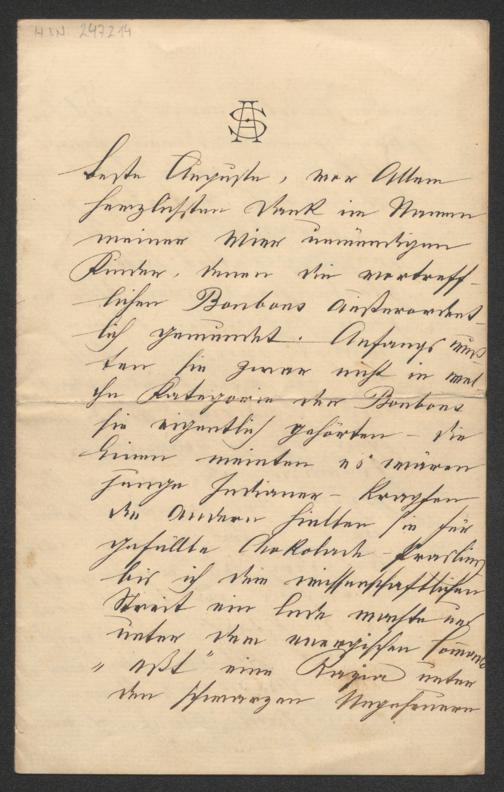 HIN 247214
AS
Beste Auguste, vor Allem
herzlichsten Dank im Namen
meiner Vier unmündigen
Kinder, denen die vortreff-
lichen Bonbons außerordent-
lich gemundet. Anfangs wuß
ten sie zwar nicht in wel
che Kategorie der Bonbons
sie eigentlich gehörten – die
Einen meinten es wären
junge Indianer-Krapfen
die Andern hielten sie für
gefüllte Chokolade-Pralines
bis ich dem wissenschaftlichen
Streit ein Ende machte und
unter dem energischen
„eßt" eine Razia unter
den schwarzen Ungeheuern